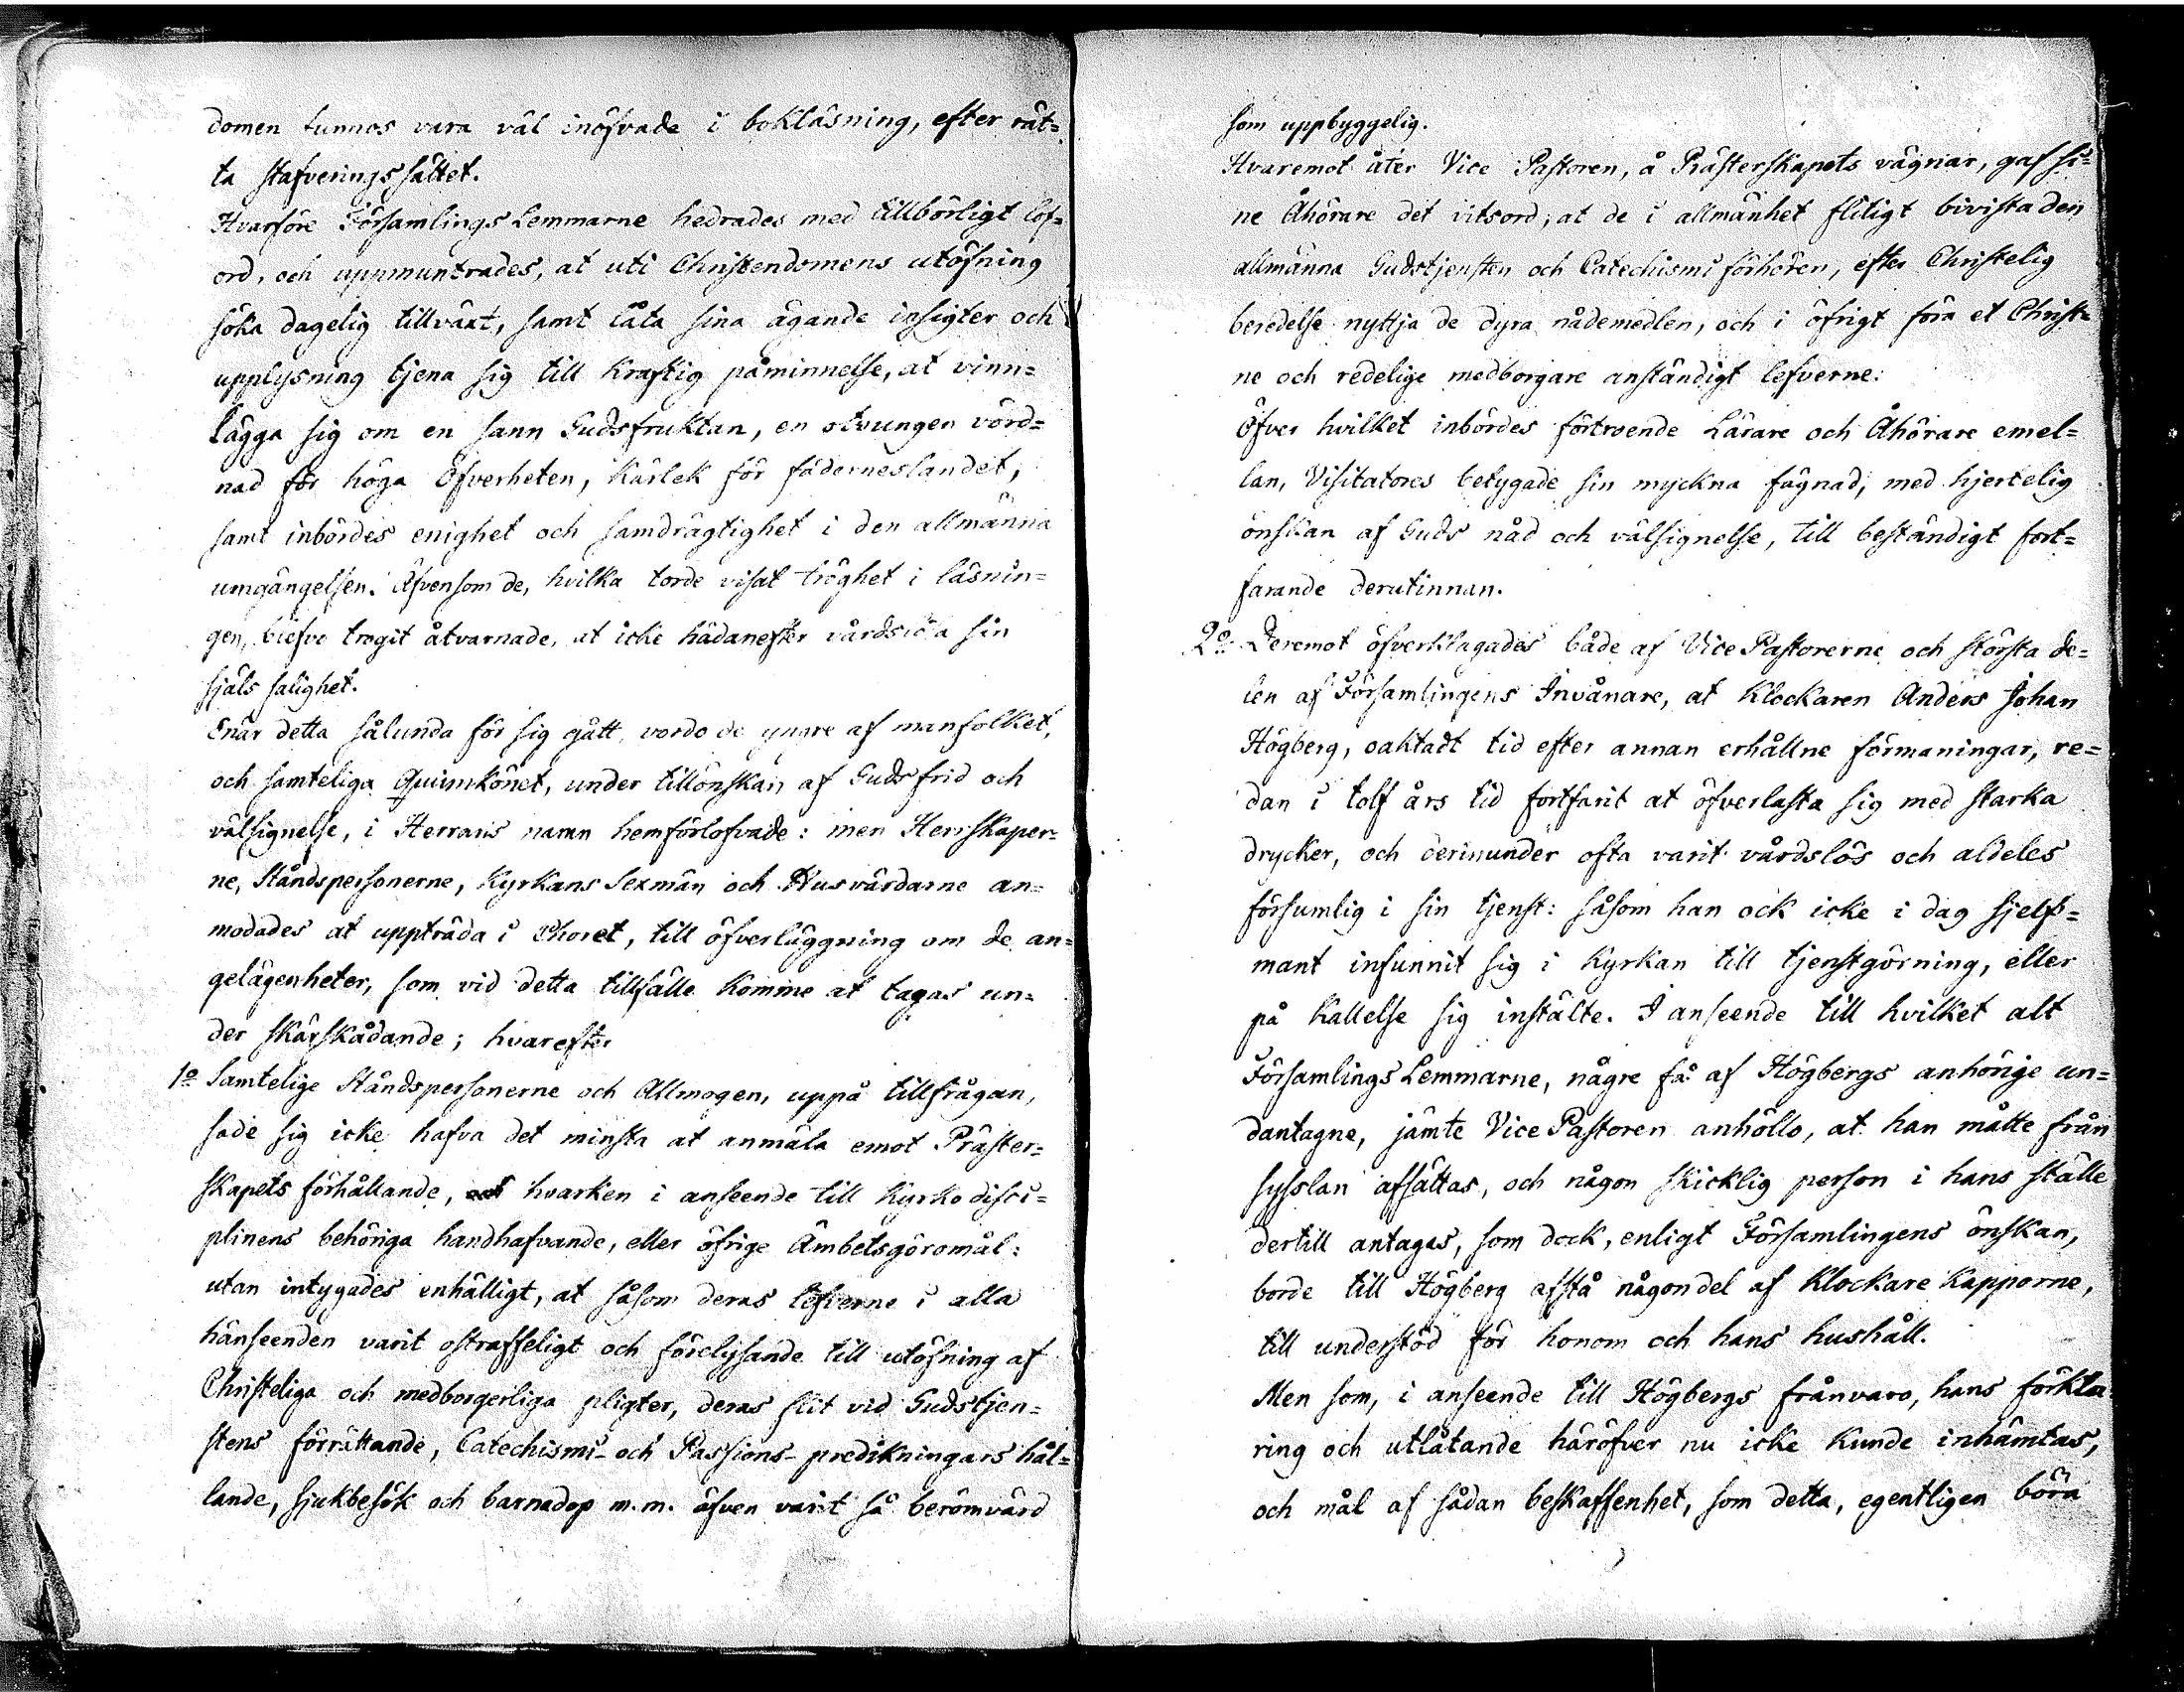 domen funnos vara väl inöfvade i bokläsning, efter rät=
ta stafverings sättet.
Hvarföre Församlings Lemmarne hedrades med tillbörligt lof=
ord, och uppmuntrades, at uti Christendomens utöfning
söka dagelig tillväxt, samt låta sina ägande insigter och
upplysning tjena sig till kraftig påminnelse, at vinn=
lägga sig om en sann Gudsfruktan, en otvungen vörd=
nad för höga Öfverheten, kärlek för fäderneslandet,
samt inbördes enighet och samdrägtighet i den allmänna
umgängelsen. Äfvensom de, hvilka torde visat tröghet i läsnin=
gen, blefvo trogit åtvarnade, at icke hädanefter vårdslösa sin
själs salighet.
Enär detta sålunda för sig gått, vordo de yngre af manfolket,
och samteliga Quinnkönet, under tillönskan af Guds frid och
välsignelse, i Herrans namn hemförlofvade: men Herrskaper=
ne, Ståndspersonerne, Kyrkans Sexmän och Husvärdarne an=
modades at uppträda i Choret, till öfverläggning om de an=
gelägenheter, som vid detta tillfälle komme at tagas un=
der skärskådande; hvarefter
1o Samtelige Ståndspersonerne och Allmogen, uppå tillfrågan,
sade sig icke hafva det minsta at anmäla emot Präster=
skapets förhållande, hvarken i anseende till Kyrko disci=
plinens behöriga handhafvande, eller öfrige Ämbetsgöromål:
utan intygades enhälligt, at såsom deras lefverne i alla
hänseenden varit ostraffeligt och förelysande till utöfning af
Christeliga och medborgerliga pligter, deras flit vid Gudstjen=
stens förrättande, Catechismi- och Passions-predikningars hål=
lande, sjukbesök och barnadop m.m. äfven varit så berömvärd
som uppbyggelig.
Hvaremot åter Vice Pastoren, å Prästerskapets vägnar, gaf si=
ne Åhörare det vitsord, at de i allmänhet flitigt bivista den
allmänna Gudstjensten och Catechismi förhören, efter Christelig
beredelse nyttja de dyra nådemedlen, och i öfrigt föra et Christ=
ne och redelige medborgare anständigt lefverne:
Öfver hvilket inbördes förtroende Lärare och Åhörare emel=
lan, Visitatores betygade sin myckna fägnad, med hjertelig
önskan af Guds nåd och välsignelse, till beständigt fort=
farande derutinnan.
2o. Deremot öfverklagades både af Vice Pastorerne och största de=
len af Församlingens Invånare, at Klockaren Anders Johan
Högberg, oaktadt tid efter annan erhållne förmaningar, re=
dan i tolf års tid fortfarit at öfverlasta sig med starka
drycker, och derinunder ofta varit vårdslös och aldeles
försumlig i sin tjenst: såsom han ock icke i dag sjelf=
mant infunnit sig i Kyrkan till tjenstgörning, eller
på kallelse sig instälte. I anseende till hvilket alt
Församlings Lemmarne, några få af Högbergs anhörige un=
dantagne, jämte Vice Pastoren anhöllo, at han måtte från
sysslan afsättas, och någon skicklig person i hans ställe
dertill antagas, som dock, enligt Församlingens önskan,
borde till Högberg afstå någon del af Klockare Kapporne,
till understöd för honom och hans hushåll.
Men som, i anseende till Högbergs frånvaro, hans förkla
ring och utlåtande häröfver nu icke kunde inhämtas,
och mål af sådan beskaffenhet, som detta, egentligen böra